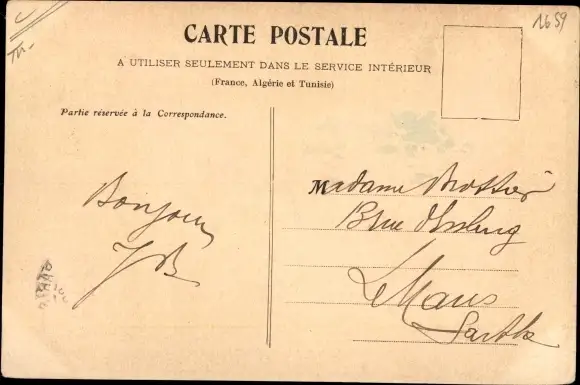 1659
CARTE POSTALE
A UTILISER SEULEMENT DANS LE SERVICE INTÉRIEUR
(France, Algérie et Tunisie)
Partie réservée à la Correspondance.
Bonjour
JB
Madame Brottier
Le Mans
Sarthe